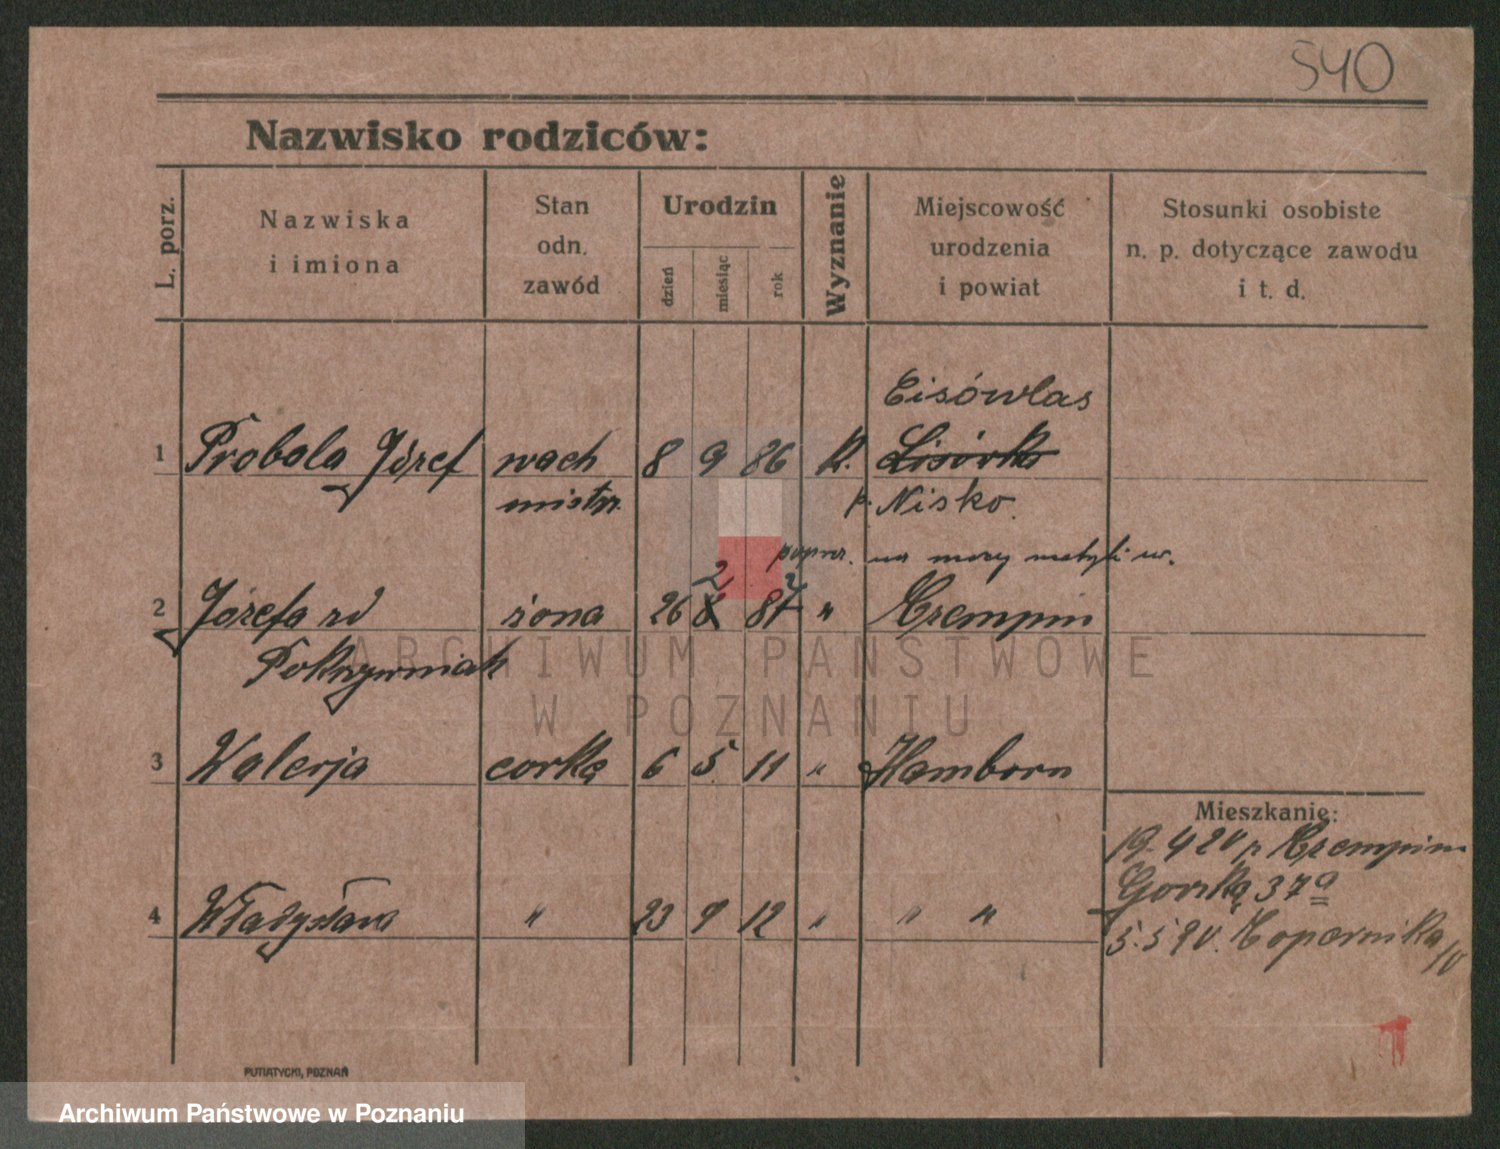 540
Nazwisko rodziców:
L. porz.
Nazwiska
i imiona
Stan
odn.
zawód
Urodzin
dzień
miesiąc
rok
Wyznanie
Miejscowość
urodzenia
i powiat
Stosunki osobiste
n. p. dotyczące zawodu
i t. d.
Cisówlas
1 Probola Józef wach 8 9 86 k. Lisówka
mistrz. p. Nisko.
popraw. na mocy metryki w.
2
2 Józefa zd żona 26 8 87 " Krempin
Pokrzywniak
3 Walerja corka 6 5 11 " Hamborn
Mieszkanie:
19. 4 20 p Krempin
Gorska 37a
4 Władysława " 23 9 12 " " "
5. 5 20. Kopernika 10
ARCHIWUM PAŃSTWOWE
W POZNANIU
PUTIATYCKI, POZNAŃ
Archiwum Państwowe w Poznaniu